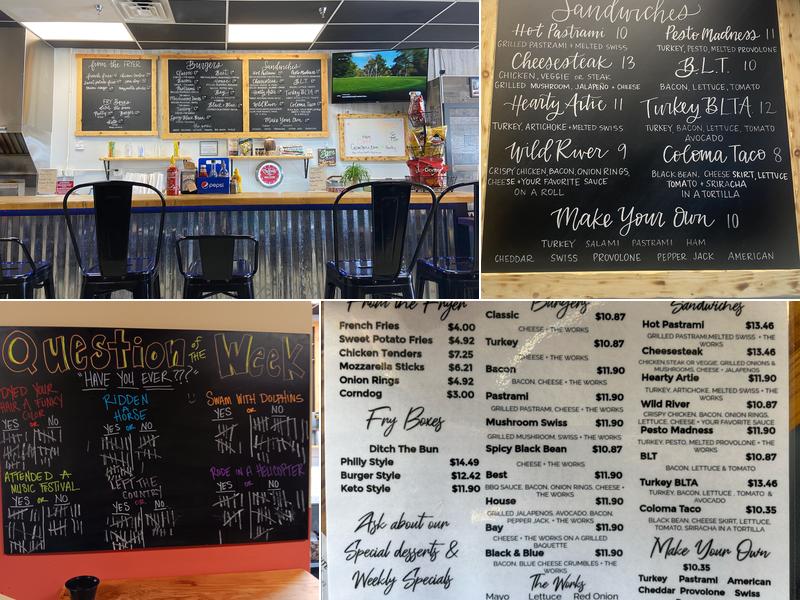 from the FRYER
Burgers
Sandwiches
Make Your Own
pepsi
Doritos
Sandwiches
Hot Pastrami 10
GRILLED PASTRAMI + MELTED SWISS
Cheesesteak 13
CHICKEN, VEGGIE or STEAK
GRILLED MUSHROOM, JALAPEÑO + CHEESE
Hearty Artie 11
TURKEY, ARTICHOKE + MELTED SWISS
Wild River 9
CRISPY CHICKEN, BACON, ONION RINGS,
CHEESE + YOUR FAVORITE SAUCE
ON A ROLL
Pesto Madness 11
TURKEY, PESTO, MELTED PROVOLONE
B.L.T. 10
BACON, LETTUCE, TOMATO
Turkey BLTA 12
TURKEY, BACON, LETTUCE, TOMATO
AVOCADO
Coloma Taco 8
BLACK BEAN, CHEESE SKIRT, LETTUCE
TOMATO + SRIRACHA
IN A TORTILLA
Make Your Own 10
TURKEY SALAMI PASTRAMI HAM
CHEDDAR SWISS PROVOLONE PEPPER JACK AMERICAN
QUESTION OF THE WEEK
"HAVE YOU EVER???"
DYED YOUR
HAIR A FUNKY
COLOR
YES OR NO
RIDDEN
A
HORSE
YES OR NO
SWAM WITH DOLPHINS
YES OR NO
ATTENDED A
MUSIC FESTIVAL
YES OR NO
LEFT THE
COUNTRY
YES OR NO
RODE IN A HELICOPTER
YES OR NO
From the Fryer
French Fries $4.00
Sweet Potato Fries $4.92
Chicken Tenders $7.25
Mozzarella Sticks $6.21
Onion Rings $4.92
Corndog $3.00
Fry Boxes
Ditch The Bun
Philly Style $14.49
Burger Style $12.42
Keto Style $11.90
Ask about our
Special desserts &
Weekly Specials
Burgers
Classic $10.87
CHEESE + THE WORKS
Turkey $10.87
CHEESE + THE WORKS
Bacon $11.90
BACON, CHEESE + THE WORKS
Pastrami $11.90
GRILLED PASTRAMI, CHEESE + THE WORKS
Mushroom Swiss $11.90
GRILLED MUSHROOM, SWISS + THE WORKS
Spicy Black Bean $10.87
CHEESE + THE WORKS
Best $11.90
BBQ SAUCE, BACON, ONION RINGS, CHEESE +
THE WORKS
House $11.90
GRILLED JALAPENOS, AVOCADO, BACON,
PEPPER JACK, + THE WORKS
Bay $11.90
CHEESE + THE WORKS ON A GRILLED
BAQUETTE
Black & Blue $11.90
BACON, BLUE CHEESE CRUMBLES + THE
WORKS
The Works
Mayo Lettuce Red Onion
Sandwiches
Hot Pastrami $13.46
GRILLED PASTRAMI,MELTED SWISS + THE
WORKS
Cheesesteak $13.46
CHICKEN STEAK OR VEGGIE, GRILLED ONIONS &
MUSHROOMS, CHEESE + JALAPENOS
Hearty Artie $11.90
TURKEY, ARTICHOKE, MELTED SWISS + THE
WORKS
Wild River $10.87
CRISPY CHICKEN, BACON, ONION RINGS,
LETTUCE, CHEESE + YOUR FAVORITE SAUCE
Pesto Madness $11.90
TURKEY, PESTO, MELTED PROVOLONE + THE
WORKS
BLT $10.87
BACON, LETTUCE & TOMATO
Turkey BLTA $13.46
TURKEY, BACON, LETTUCE , TOMATO &
AVOCADO
Coloma Taco $10.35
BLACK BEAN, CHEESE SKIRT, LETTUCE,
TOMATO, SRIRACHA IN A TORTILLA
Make Your Own
$10.35
Turkey Pastrami American
Cheddar Provolone Swiss